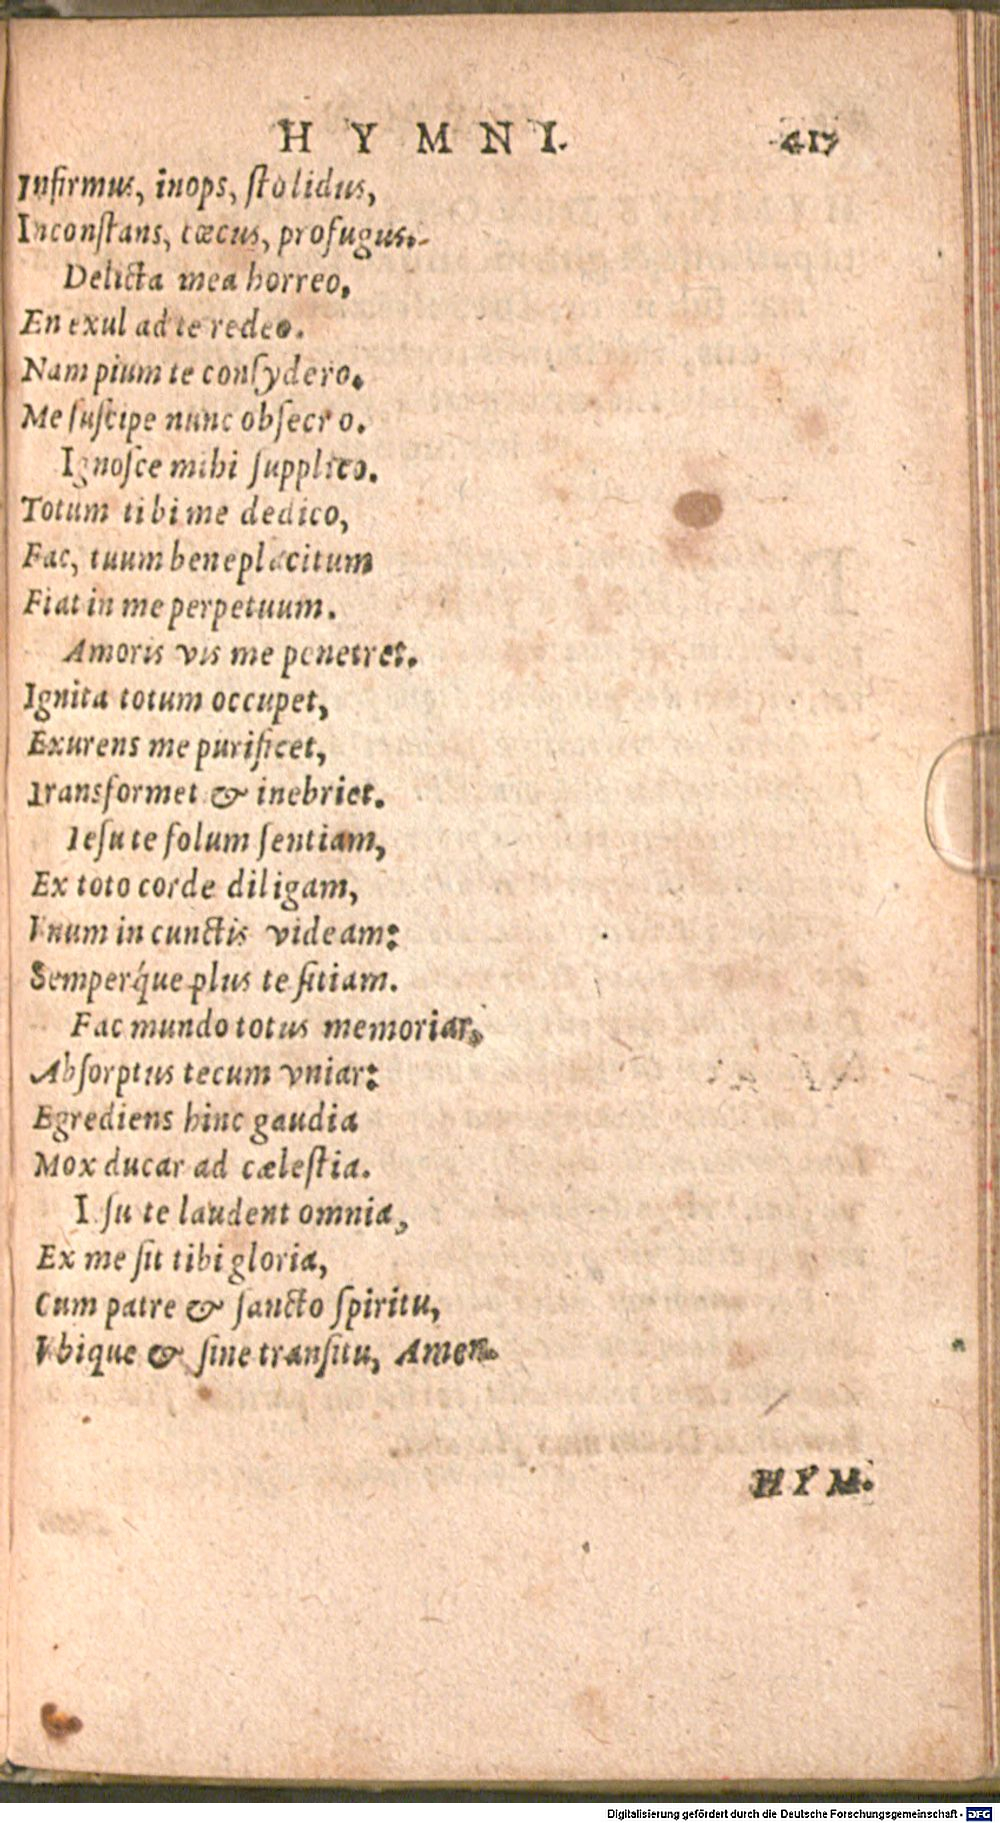 HYMNI. 417
Infirmus, inops, ſtolidus,
Inconſtans, cœcus, profugus.
Delicta mea horreo,
En exul ad te redeo.
Nam pium te conſydero.
Me ſuſcipe nunc obſecro.
Ignoſce mihi ſupplico.
Totum tibi me dedico,
Fac, tuum beneplacitum
Fiat in me perpetuum.
Amoris vis me penetret.
Ignita totum occupet,
Exurens me purificet,
Transformet & inebriet.
Ieſu te ſolum ſentiam,
Ex toto corde diligam,
Vnum in cunctis videam:
Semperq́ue plus te ſitiam.
Fac mundo totus memoriar,
Abſorptus tecum vniar:
Egrediens hinc gaudia
Mox ducar ad cæleſtia.
I ſu te laudent omnia,
Ex me ſit tibi gloria,
Cum patre & ſancto ſpiritu,
Vbique & ſine tranſitu, Amen.
HYM.
Digitalisierung gefördert durch die Deutsche Forschungsgemeinschaft - DFG